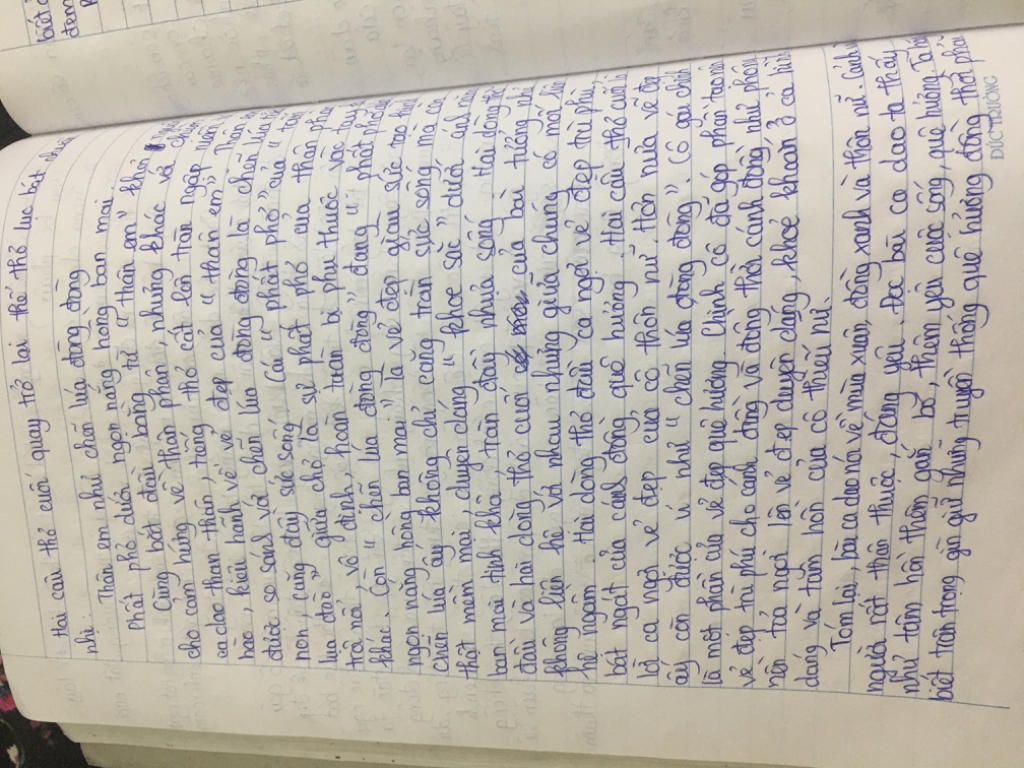 Hai câu thơ cuối quay trở lại thể thơ lục bát nhuần
nhị:
Thân em như chẽn lúa đòng đòng
Phất phơ dưới ngọn nắng hồng ban mai.
Cũng bắt đầu bằng từ "thân em" khơi
cho cảm hứng về thân phận, nhưng khác với
ca dao than thân, tiếng thơ cất lên tràn ngập niềm
hào, kiêu hãnh về vẻ đẹp của "thân em". Thân
được so sánh với chẽn lúa đòng đòng là chẽn lúa
non, căng đầy sức sống. Cái "phất phơ" của "tấm
lụa đào" giữa chợ là sự phất phơ của thân phận
trôi nổi, vô định, hoàn toàn bị phụ thuộc vào
khác. Còn "chẽn lúa đòng đòng" đang "phất phơ
ngọn nắng hồng ban mai" là vẻ đẹp giàu sức
chẽn lúa ấy không chỉ căng tràn sức sống mà còn
thật mềm mại, duyên dáng "khoe sắc" dưới ánh
ban mai tinh khôi, tràn đầy nhựa sống. Hai dòng thơ
đầu và hai dòng thơ cuối của bài tưởng như
không liên hệ với nhau nhưng giữa chúng có mối liên
hệ ngầm. Hai dòng thơ đầu ca ngợi vẻ đẹp trù phú,
bát ngát của cánh đồng quê hương. Hai câu thơ cuối là
lời ca ngợi vẻ đẹp của cô thôn nữ, thôn nữa vẻ đẹp
ấy còn được ví như "chẽn lúa đòng đòng". Cô gái chính
là một phần của vẻ đẹp quê hương. Chính cô đã góp phần tạo nên
vẻ đẹp trù phú cho cánh đồng và đồng thời cánh đồng như phông
nền toả ngời lên vẻ đẹp duyên dáng, khoẻ khoắn ở cả hình
dáng và tâm hồn của cô thiếu nữ.
Tóm lại, bài ca dao nói về mùa xuân, đồng xanh và thôn nữ. Cảnh
người rất thân thuộc, đáng yêu. Đọc bài ca dao ta thấy
như tâm hồn thêm gắn bó, thêm yêu cuộc sống, quê hương. Ta
biết trân trọng gìn giữ những truyền thống quê hương đồng thời phải
ĐỨC TRƯỜNG
biết
đem